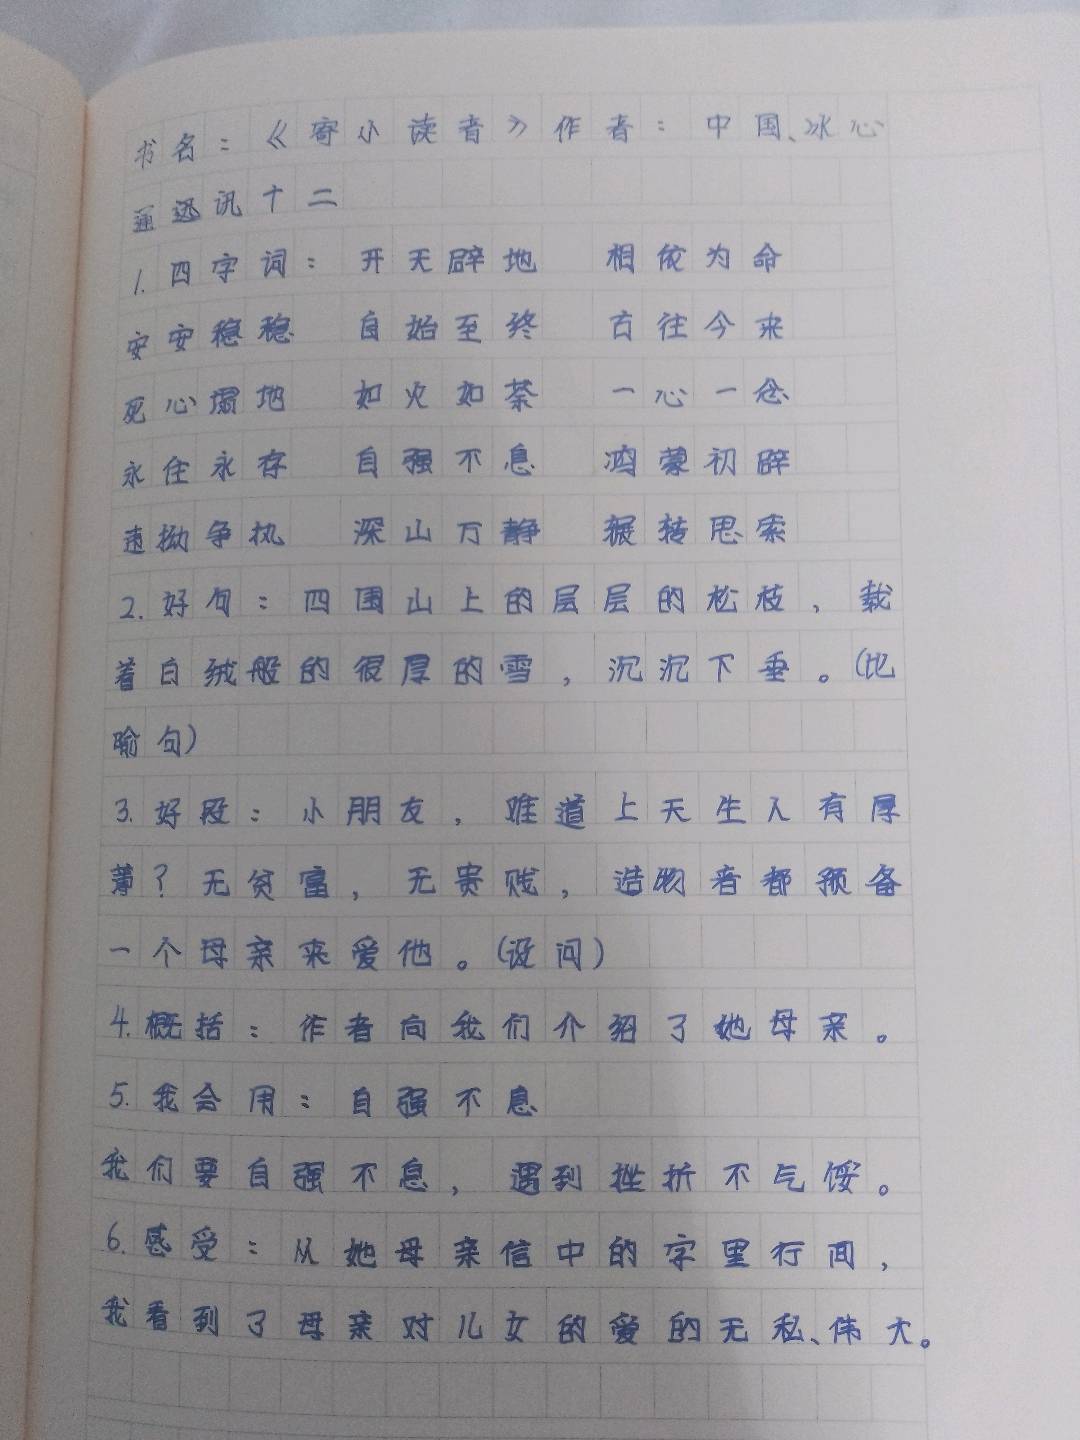 书名：《寄小读者》作者：中国、冰心
通迅讯十二
1.四字词：开天辟地 相依为命
安安稳稳 自始至终 古往今来
死心塌地 如火如荼 一心一念
永住永存 自强不息 鸿蒙初辟
违拗争执 深山万静 辗转思索
2.好句：四围山上的层层的松枝，载
着白绒般的很厚的雪，沉沉下垂。(比
喻句)
3.好段：小朋友，难道上天生人有厚
薄？无贫富，无贵贱，造物者都预备
一个母亲来爱他。(设问)
4.概括：作者向我们介绍了她母亲。
5.我会用：自强不息
我们要自强不息，遇到挫折不气馁。
6.感受：从她母亲信中的字里行间，
我看到了母亲对儿女的爱的无私、伟大。